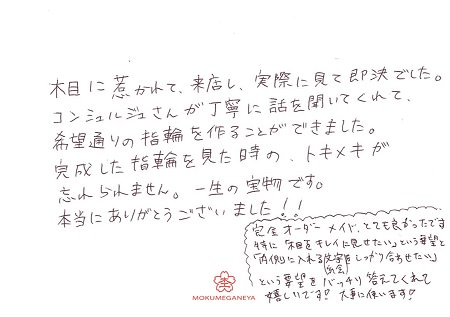 木目に惹かれて、来店し、実際に見て即決でした。
コンシェルジュさんが丁寧に話を聞いてくれて、
希望通りの指輪を作ることができました。
完成した指輪を見た時の、トキメキが
忘れられません。一生の宝物です。
本当にありがとうございました!!
完全オーダーメイド、とても良かったです
特に「木目をキレイに見せたい」という要望と
「内側に入れる文字をしっかり合わせたい」
という要望をバッチリ答えてくれて
嬉しいです! 大事に使います!
MOKUMEGANEYA